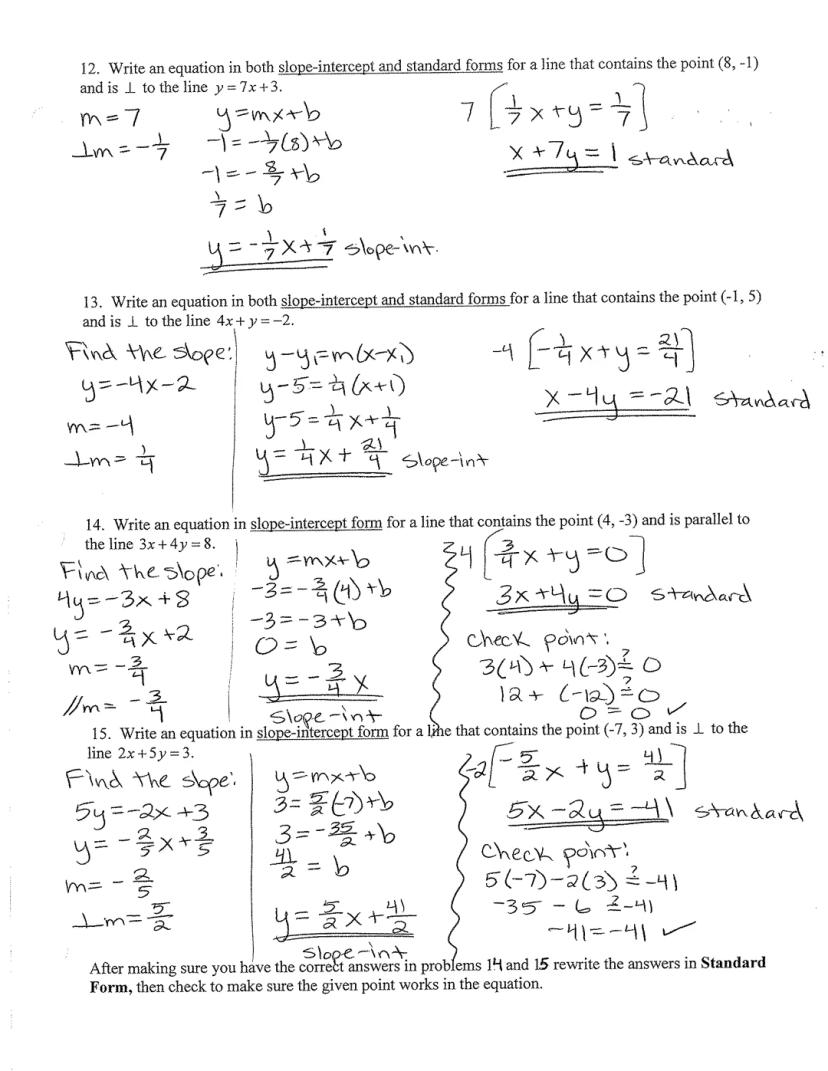 12. Write an equation in both slope-intercept and standard forms for a line that contains the point (8, -1)
and is ⊥ to the line y = 7x + 3.
m = 7
⊥m = -1/7
y = mx + b
-1 = -1/7(8) + b
-1 = -8/7 + b
1/7 = b
y = -1/7x + 1/7 slope-int.
7 [1/7x + y = 1/7]
x + 7y = 1 standard
13. Write an equation in both slope-intercept and standard forms for a line that contains the point (-1, 5)
and is ⊥ to the line 4x + y = -2.
Find the slope:
y = -4x - 2
m = -4
⊥m = 1/4
y - y₁ = m(x - x₁)
y - 5 = 1/4(x + 1)
y - 5 = 1/4x + 1/4
y = 1/4x + 21/4 slope-int
-4 [-1/4x + y = 21/4]
x - 4y = -21 standard
14. Write an equation in slope-intercept form for a line that contains the point (4, -3) and is parallel to
the line 3x + 4y = 8.
Find the slope:
4y = -3x + 8
y = -3/4x + 2
m = -3/4
//m = -3/4
y = mx + b
-3 = -3/4(4) + b
-3 = -3 + b
0 = b
y = -3/4x
slope-int
4 [3/4x + y = 0]
3x + 4y = 0 standard
Check point:
3(4) + 4(-3) ?= 0
12 + (-12) ?= 0
0 = 0 ✓
15. Write an equation in slope-intercept form for a line that contains the point (-7, 3) and is ⊥ to the
line 2x + 5y = 3.
Find the slope:
5y = -2x + 3
y = -2/5x + 3/5
m = -2/5
⊥m = 5/2
y = mx + b
3 = 5/2(-7) + b
3 = -35/2 + b
41/2 = b
y = 5/2x + 41/2
slope-int.
-2 [-5/2x + y = 41/2]
5x - 2y = -41 standard
Check point:
5(-7) - 2(3) ?= -41
-35 - 6 ?= -41
-41 = -41 ✓
After making sure you have the correct answers in problems 14 and 15 rewrite the answers in Standard
Form, then check to make sure the given point works in the equation.